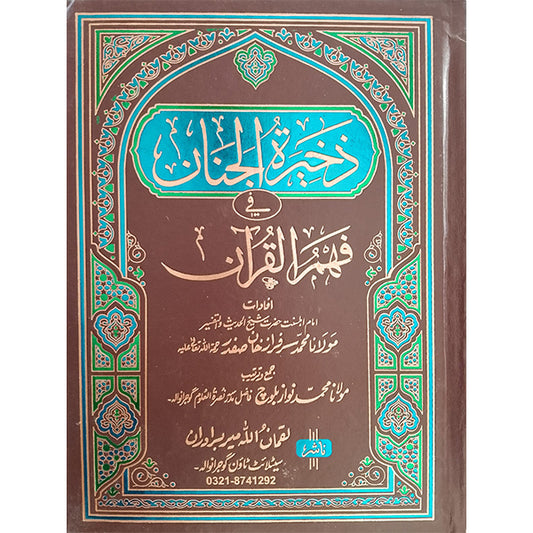 ذخیرۃ الجنان
فی
فہم القرآن
افادات
امام اہلسنت حضرت شیخ الحدیث والتفسیر
مولانا محمد سرفراز خان صفدر رحمۃ اللہ تعالیٰ علیہ
جمع و ترتیب
مولانا محمد نواز بلوچ فاضل مدرسہ نصرۃ العلوم گوجرانوالہ۔
ناشر
لقمان اللہ میر برادران
سیٹلائٹ ٹاؤن گوجرانوالہ۔
0321-8741292